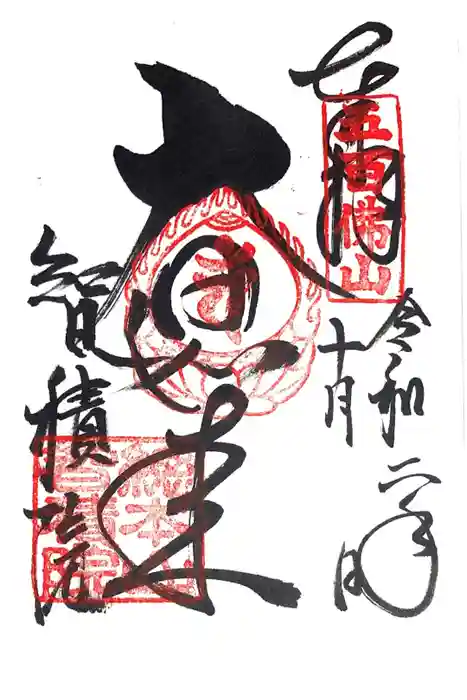 奉拝
五百佛山
令和二年
十月 日
大日如来
智積院
總本山
智積院